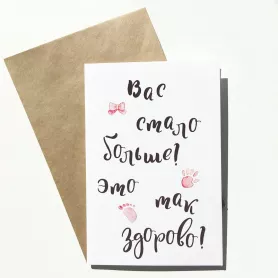 Вас
стало
больше!
это
так
здорово!